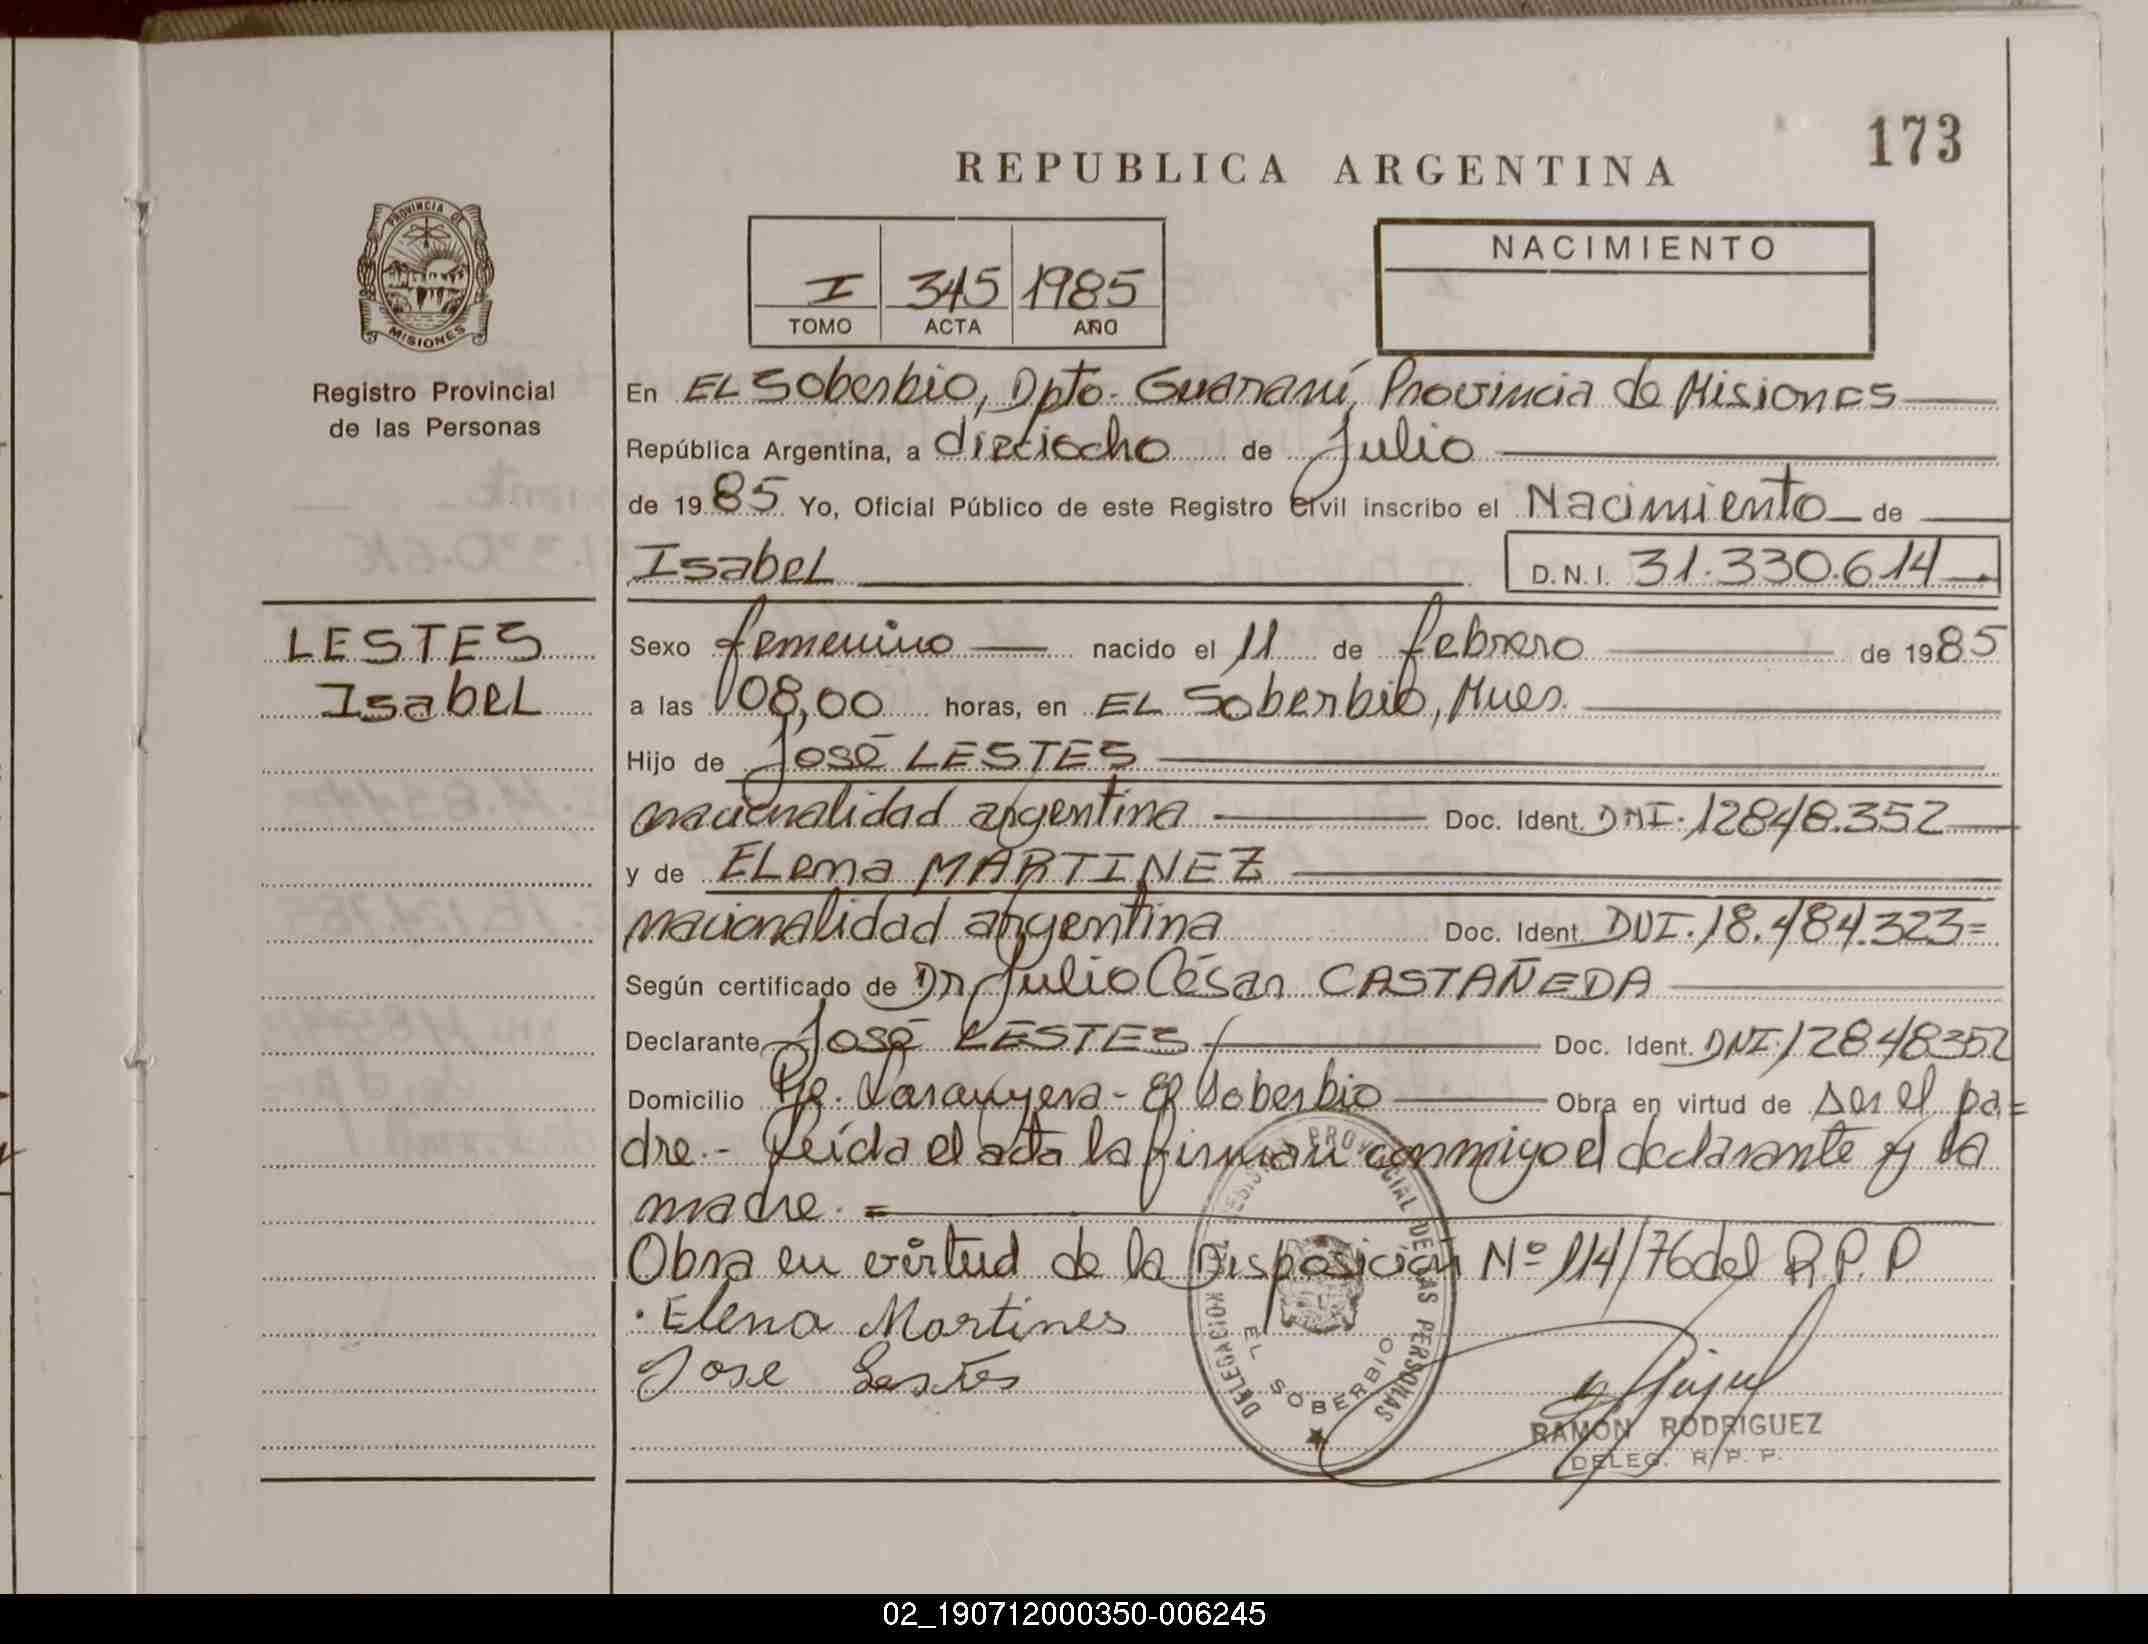 173
REPUBLICA ARGENTINA
I 345 1985
TOMO ACTA AÑO
NACIMIENTO
PROVINCIA DE
MISIONES
Registro Provincial
de las Personas
LESTES
Isabel
En EL Soberbio, Dpto. Guaraní, Provincia de Misiones
República Argentina, a dieciocho de Julio
de 1985 Yo, Oficial Público de este Registro Civil inscribo el Nacimiento de
Isabel D.N.I. 31.330.614
Sexo femenino nacido el 11 de febrero de 1985
a las 08,00 horas, en EL Soberbio, Mnes.
Hijo de José LESTES
nacionalidad argentina Doc. Ident. DNI. 12848.352
y de ELena MARTINEZ
nacionalidad argentina Doc. Ident. DNI. 18.484.323=
Según certificado de Dr Julio César CASTAÑEDA
Declarante José LESTES Doc. Ident. DNI. 12848352
Domicilio Pje. Laranyera - El Soberbio Obra en virtud de ser el pa=
dre.- Leída el acta la firman conmigo el declarante y la
madre.=
Obra en virtud de la Disposición Nº 114/76 del R.P.P
Elena Martines
Jose Lestes
REGISTRO PROVINCIAL DE LAS PERSONAS
DELEGACION
EL SOBERBIO
RAMON RODRIGUEZ
DELEG. R. P. P.
02_190712000350-006245